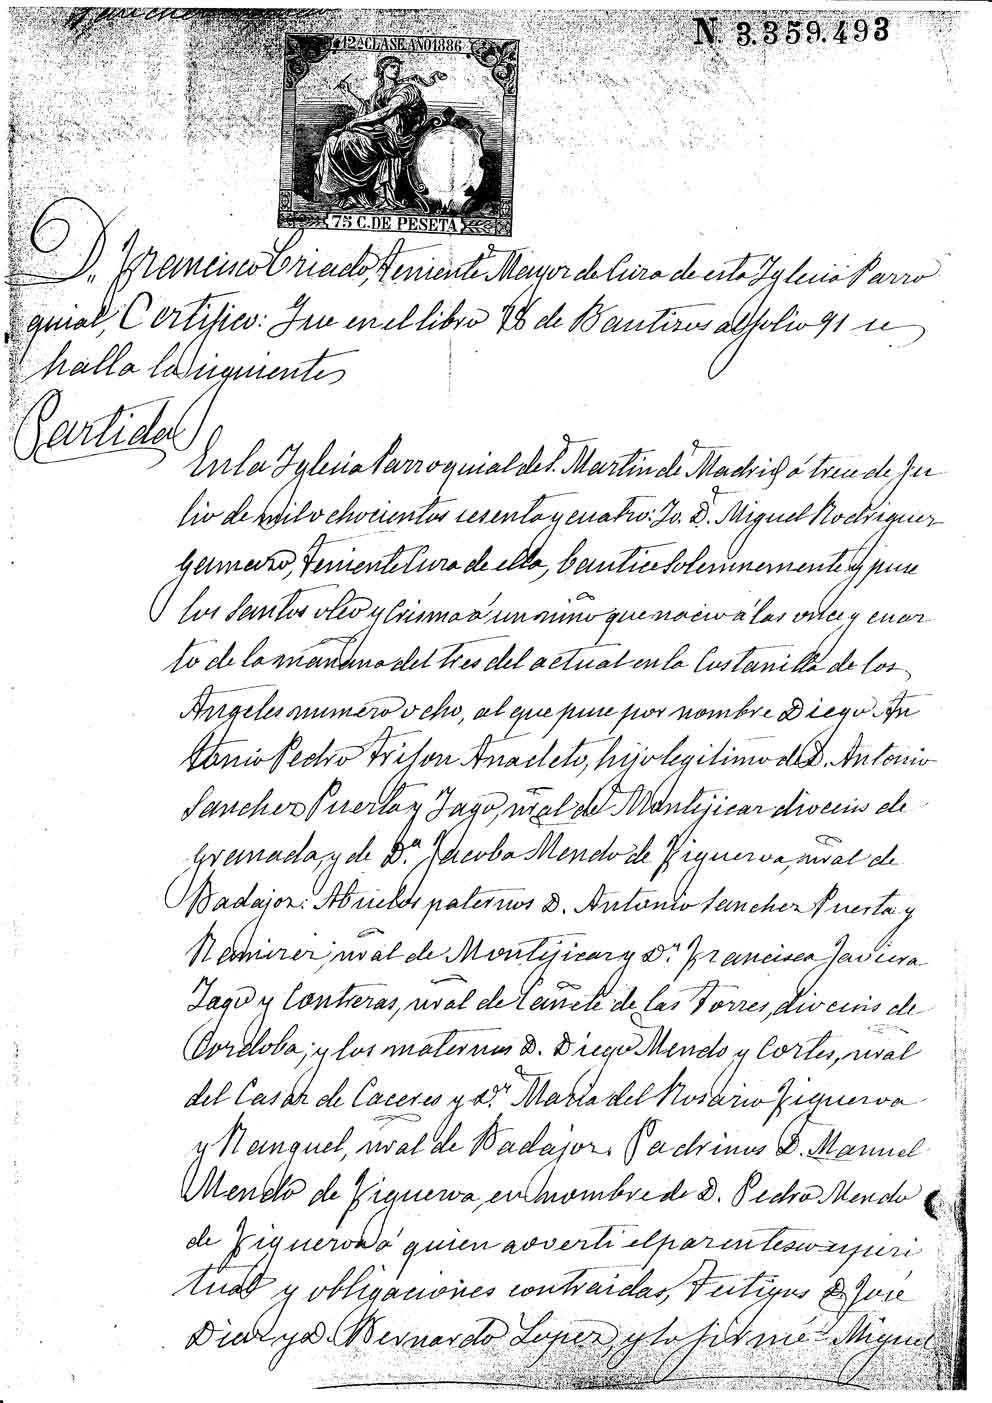 N. 3.359.493
12ª CLASE AÑO 1886
75 C. DE PESETA
D. Francisco Criado, Teniente Mayor de Cura de esta Yglecia Parro
quial, Certifico: Que en el libro 78 de Bautizos al folio 91 se
halla la siguiente
Partida
En la Yglecia Parroquial de S. Martin de Madrid á trece de Ju
lio de mil ochocientos sesenta y cuatro: Yo D. Miguel Rodriguez
Gamazo, Teniente Cura de ella, bautice Solemnemente y puse
los Santos oleo y Crisma á un niño que nacio á las once y cuar
to de la mañana del tres del actual en la Costanilla de los
Angeles numero ocho, al que puse por nombre Diego An
tonio Pedro Trifon Anacleto, hijo legitimo de D. Antonio
Sanchez Puerta y Yago, nral de Montejicar diocesis de
Granada, y de D.ª Jacoba Mendo de Figueroa, nral de
Badajoz: Abuelos paternos D. Antonio Sanchez Puerta y
Ramirez, nral de Montejicar y D.ª Francisca Javiera
Yago y Contreras, nral de Cañete de las Torres, diocesis de
Cordoba; y los maternos D. Diego Mendo y Cortes, nral
del Casar de Caceres y D.ª Maria del Rosario Figueroa
y Ranguel, nral de Badajoz. Padrinos D. Manuel
Mendo de Figueroa, en nombre de D. Pedro Mendo
de Figueroa á quien adverti el parentesco espiri
tual y obligaciones contraidas, Testigos D. José
Diaz y D. Bernardo Lopez, y lo firmé = Miguel